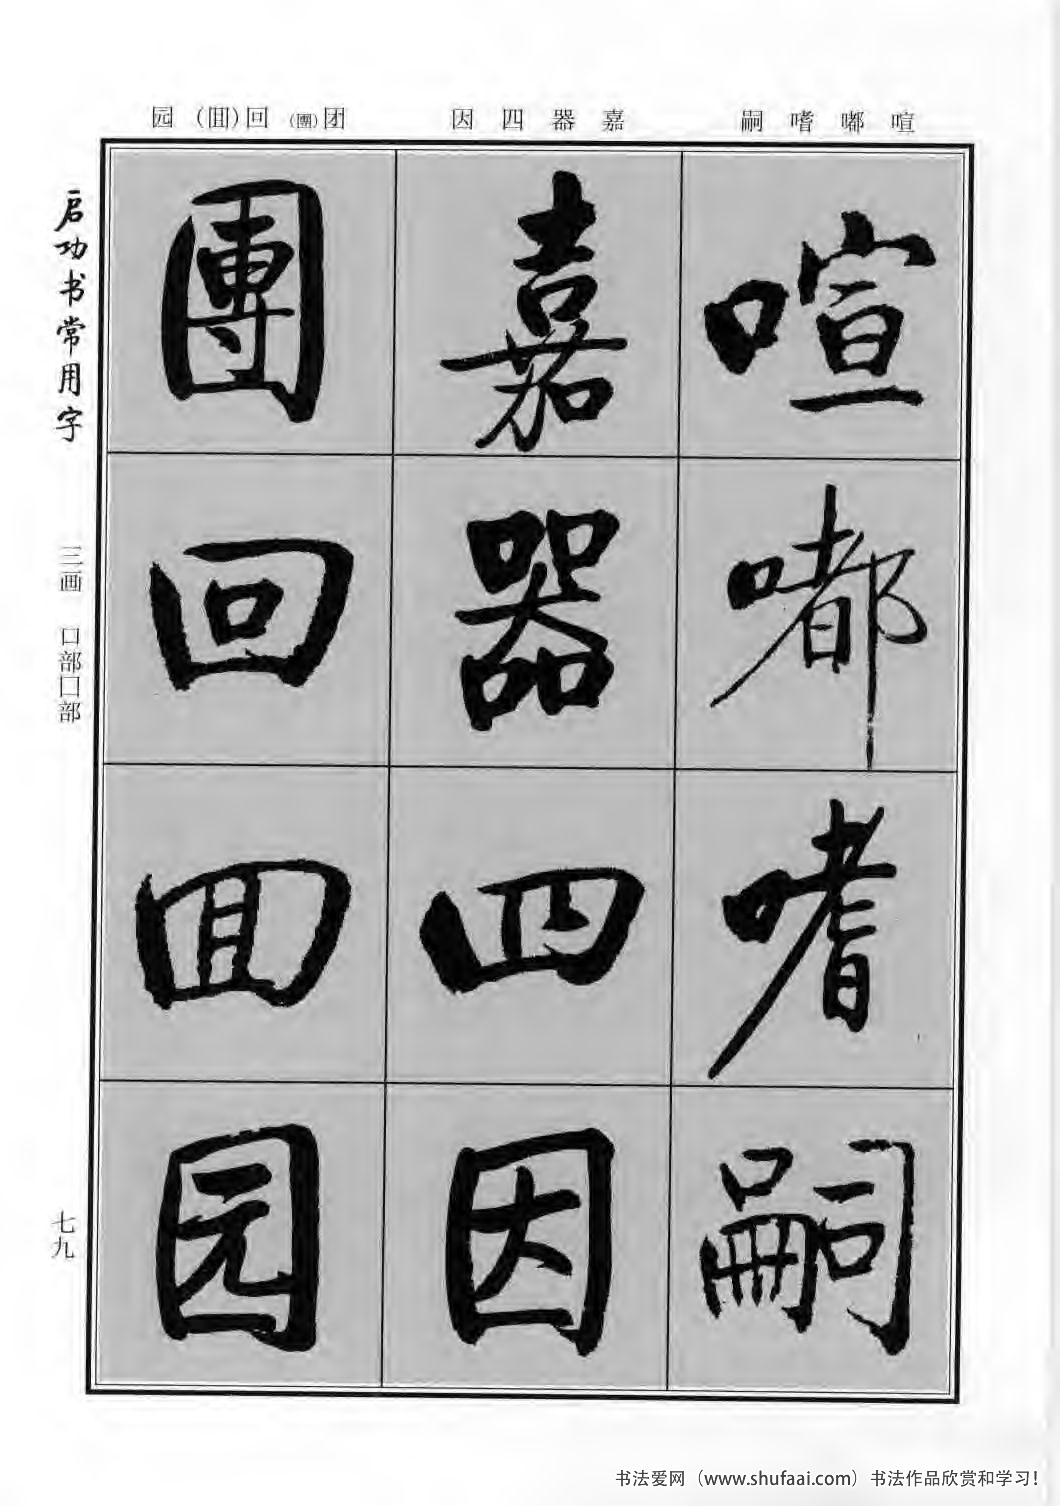 喧 嘟 嗜 嗣
嘉 器 四 因
团(團) 回(囬) 园
喧
嘟
嗜
嗣
嘉
器
四
因
團
回
囬
园
启功书常用字
三画 口部囗部
七九
书法爱网（www.shufaai.com）书法作品欣赏和学习！